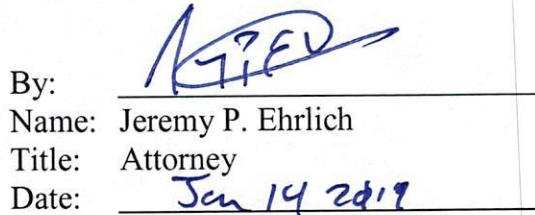 By:
Name: Jeremy P. Ehrlich
Title: Attorney
Date: Jan 14 2019